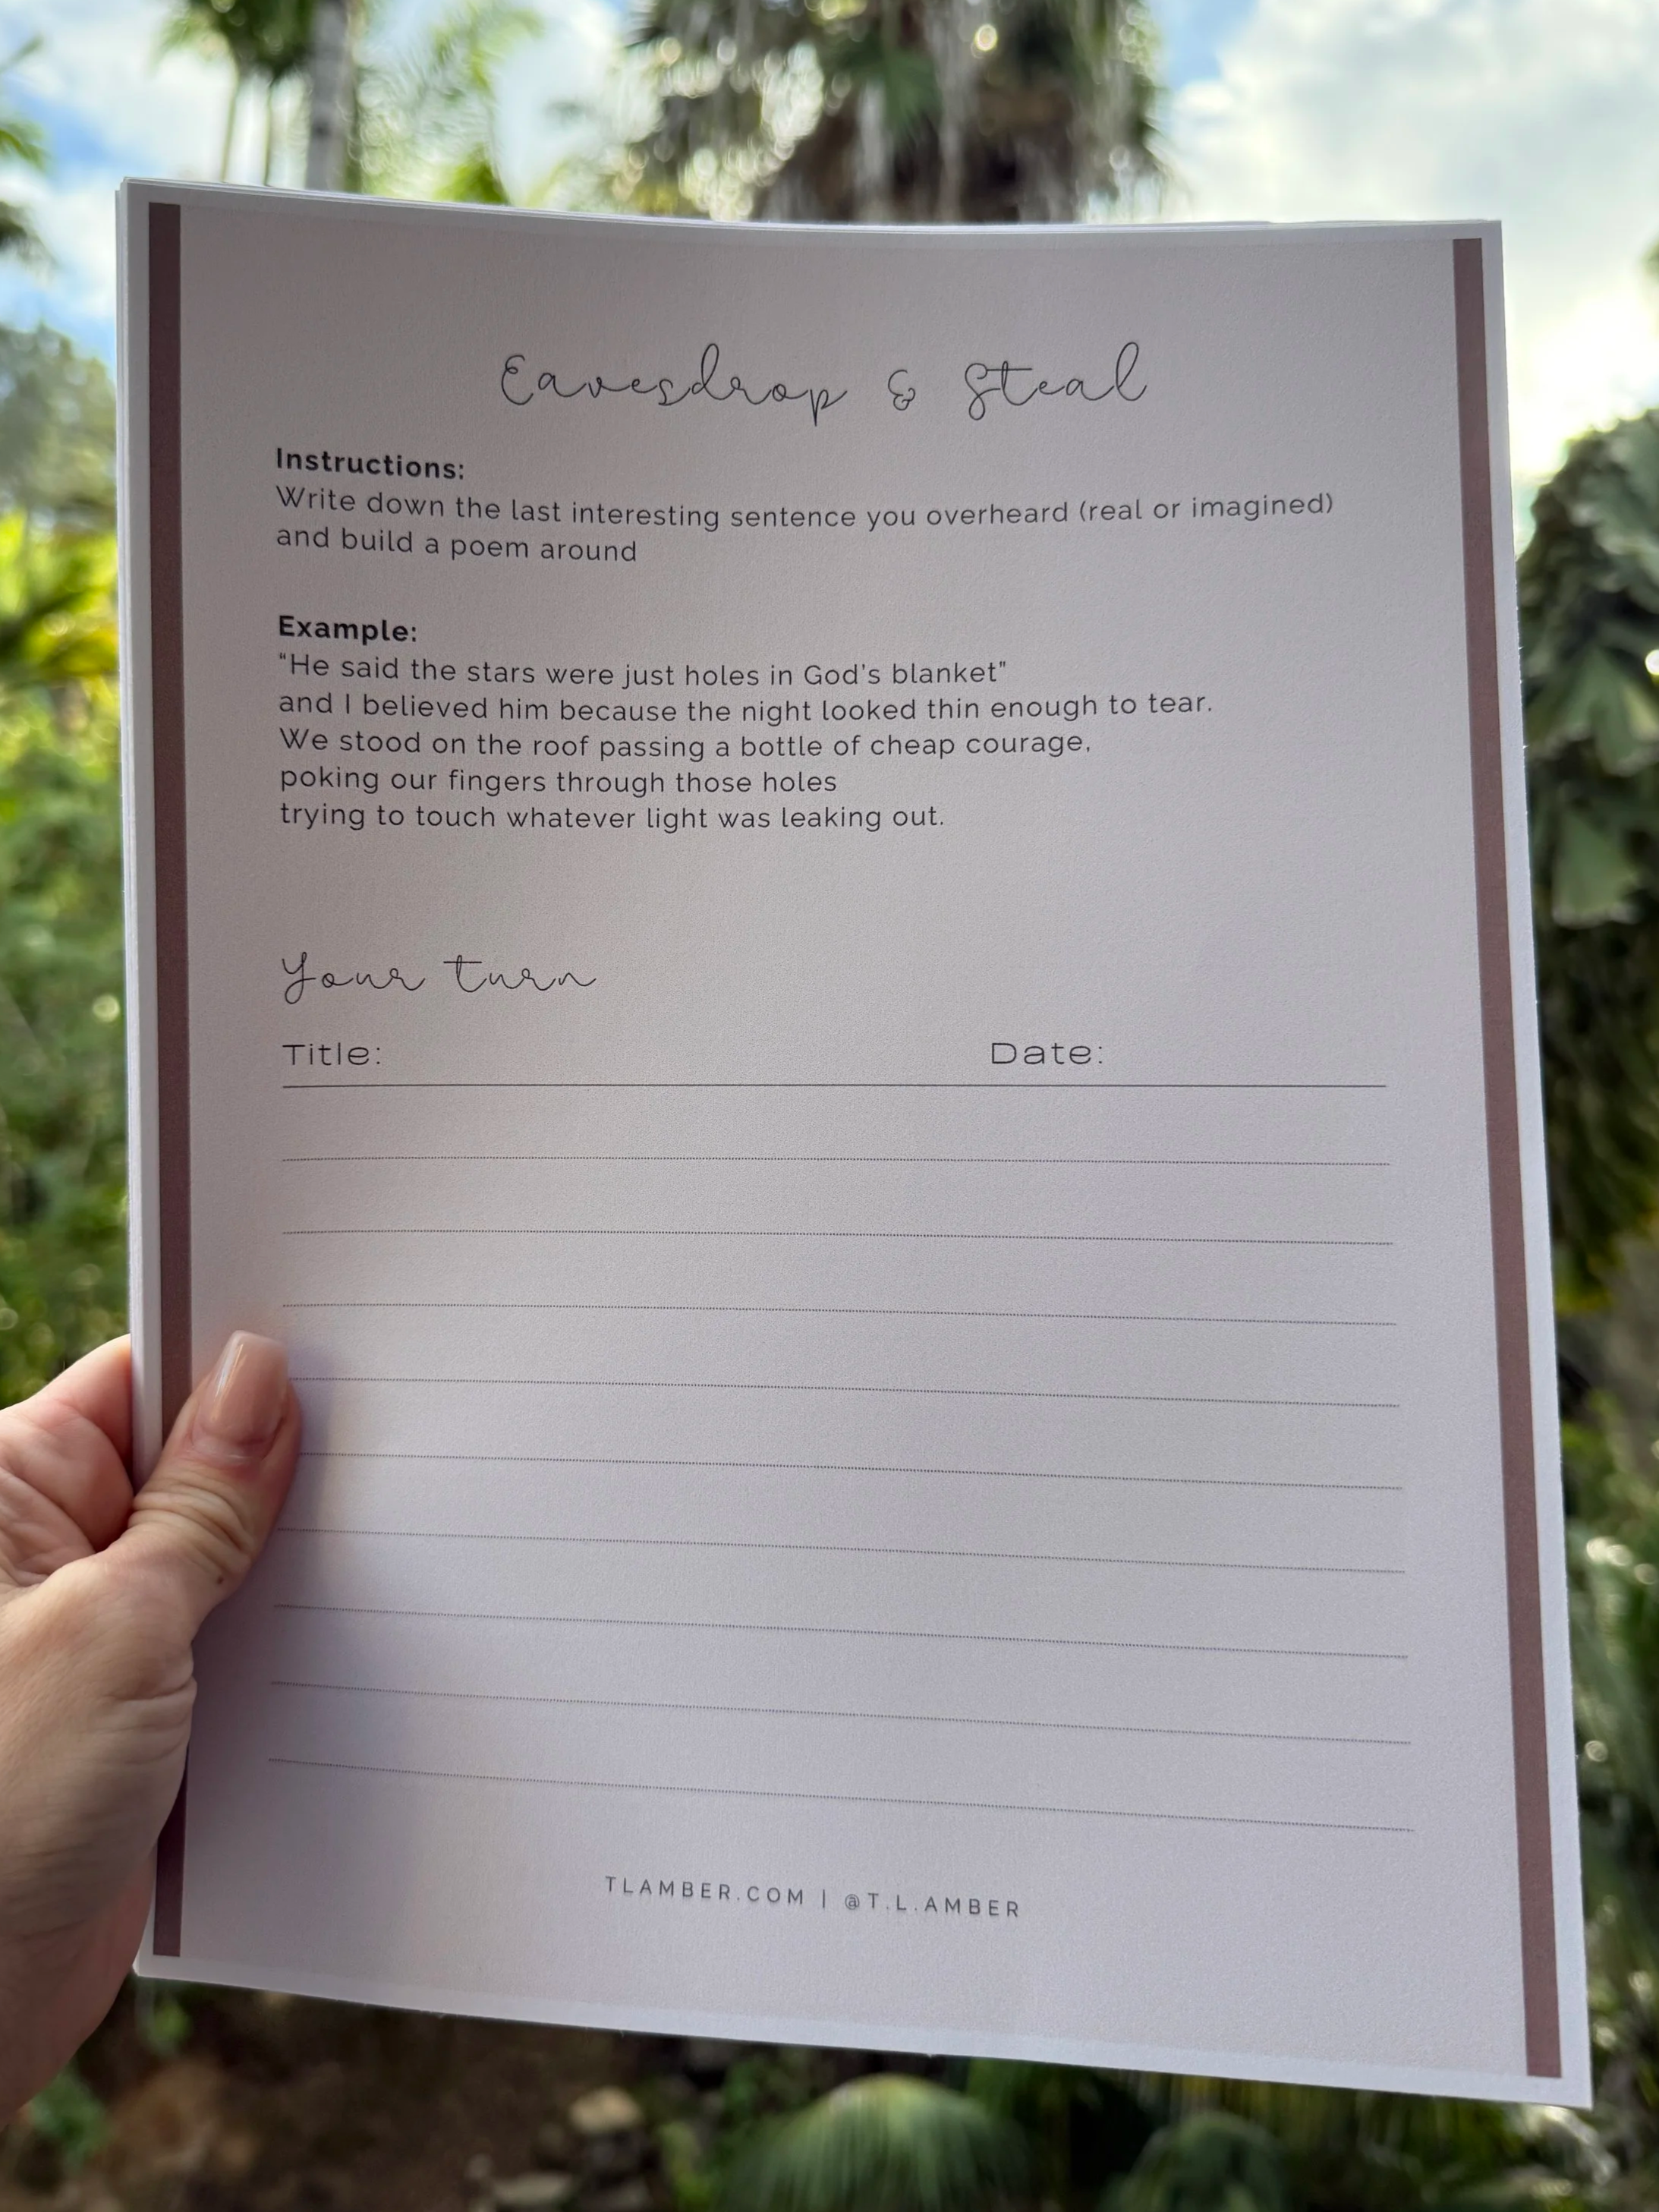 Eavesdrop & Steal
Instructions:
Write down the last interesting sentence you overheard (real or imagined)
and build a poem around
Example:
“He said the stars were just holes in God's blanket”
and I believed him because the night looked thin enough to tear.
We stood on the roof passing a bottle of cheap courage,
poking our fingers through those holes
trying to touch whatever light was leaking out.
Your turn
Title: Date:
TLAMBER.COM | @T.L.AMBER